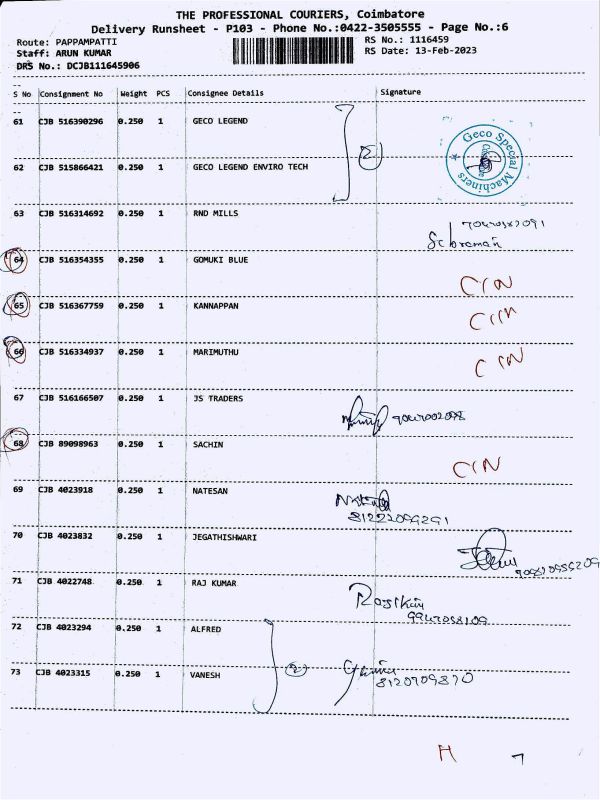 THE PROFESSIONAL COURIERS, Coimbatore
Delivery Runsheet - P103 - Phone No.:0422-3505555 - Page No.:6
Route: PAPPAMPATTI
RS No.: 1116459
Staff: ARUN KUMAR
RS Date: 13-Feb-2023
DRS No.: DCJB111645906
S No Consignment No Weight PCS Consignee Details Signature
61 CJB 516390296 0.250 1 GECO LEGEND
Geco Special Machiners
62 CJB 515866421 0.250 1 GECO LEGEND ENVIRO TECH
2
63 CJB 516314692 0.250 1 RND MILLS
64 CJB 516354355 0.250 1 GOMUKI BLUE
C/N
65 CJB 516367759 0.250 1 KANNAPPAN
66 CJB 516334937 0.250 1 MARIMUTHU
C/N
67 CJB 516166507 0.250 1 JS TRADERS
68 CJB 89098963 0.250 1 SACHIN
C/N
69 CJB 4023918 0.250 1 NATESAN
8122209291
70 CJB 4023832 0.250 1 JEGATHISHWARI
71 CJB 4022748 0.250 1 RAJ KUMAR
9947058109
72 CJB 4023294 0.250 1 ALFRED
2
73 CJB 4023315 0.250 1 VANESH
8120709870